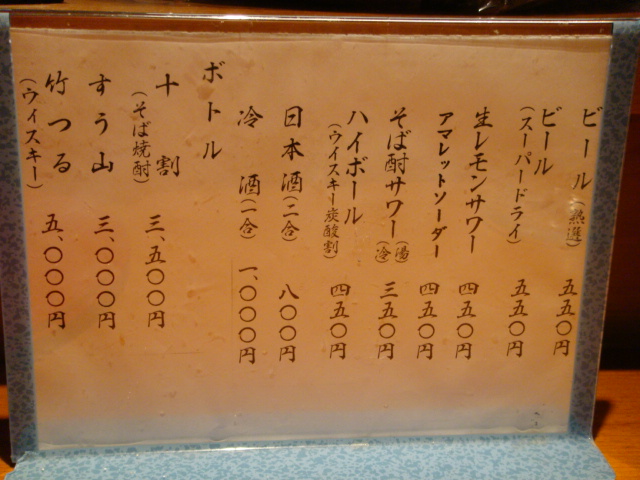 ビール（熟選） 五五〇円
ビール（スーパードライ） 五五〇円
生レモンサワー 四五〇円
アマレットソーダー 四五〇円
そば酎サワー（湯冷） 三五〇円
ハイボール（ウイスキー炭酸割） 四五〇円
日本酒（二合） 八〇〇円
冷酒（一合） 一、〇〇〇円
ボトル
十割（そば焼酎） 三、五〇〇円
すう山 三、〇〇〇円
竹つる（ウイスキー） 五、〇〇〇円